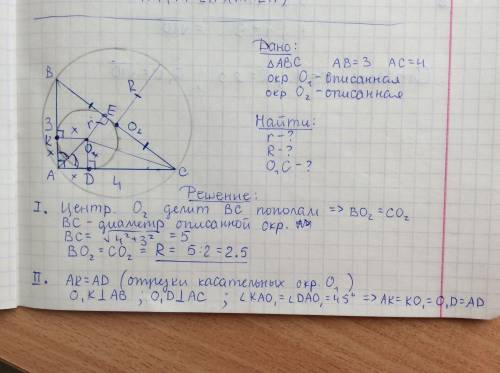 Дано:
ΔABC AB=3 AC=4
окр. O₁-вписанная
окр O₂-описанная
Найти:
r-?
R-?
O₁C-?
B
R
E
r
O₂
3
K
x
O₁
x
A
x
D
4
C
Решение:
I. Центр. O₂ делит BC пополам => BO₂=CO₂
BC-диаметр описанной окр.
BC= √4²+3² =5
BO₂=CO₂= R= 5:2=2.5
II. AK=AD (отрезки касательных окр. O₁)
O₁K⊥AB ; O₁D⊥AC ; ∠KAO₁=∠DAO₁=45° => AK=KO₁=O₁D=AD